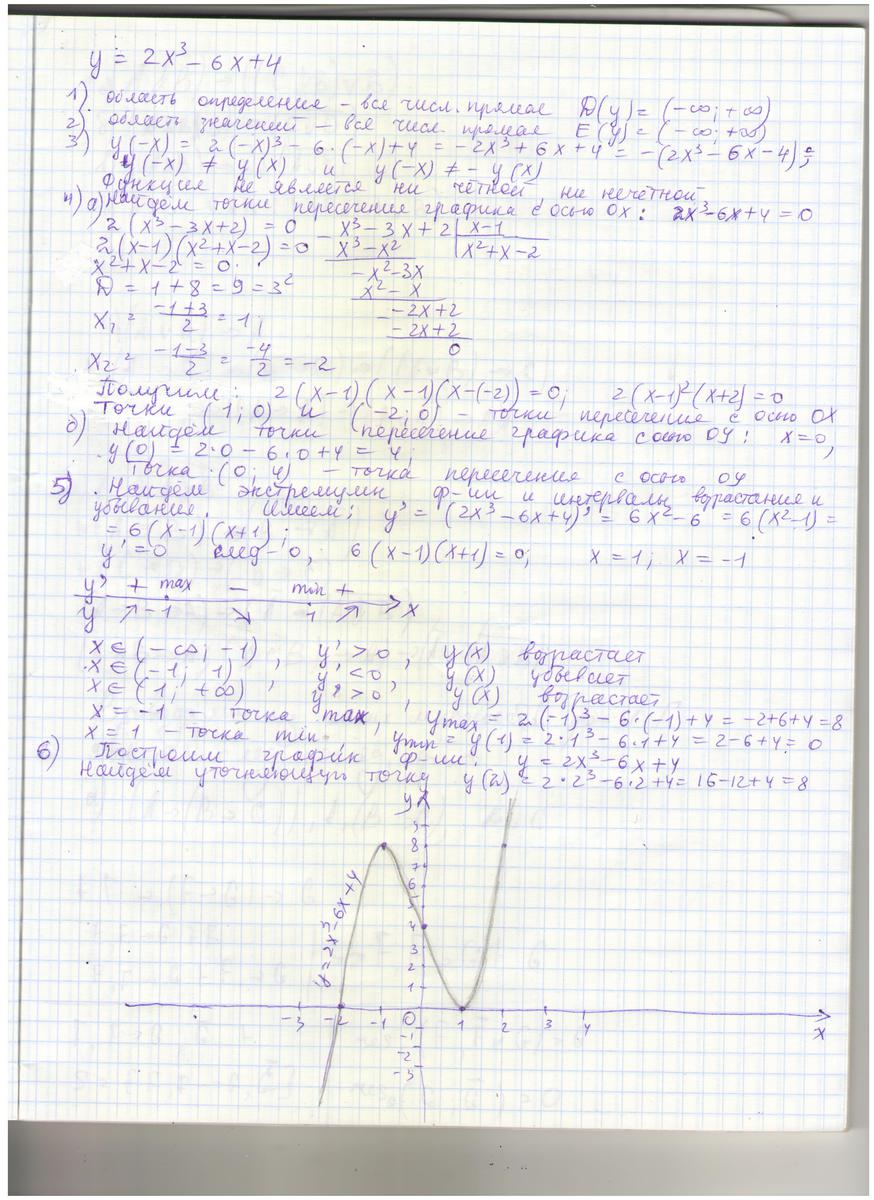 y = 2x³ - 6x + 4
1) область определения - вся числ. прямая D(y) = (-∞; +∞)
2) область значений - вся числ. прямая E(y) = (-∞; +∞)
3) y(-x) = 2(-x)³ - 6·(-x) + 4 = -2x³ + 6x + 4 = -(2x³ - 6x - 4);
y(-x) ≠ y(x) и y(-x) ≠ -y(x)
Функция не является ни чётной ни нечётной
4) а) Найдём точки пересечение графика с осью OX: 2x³-6x+4 = 0
2(x³ - 3x + 2) = 0
2(x-1)(x²+x-2) = 0
x² + x - 2 = 0
D = 1 + 8 = 9 = 3²
x₁ = (-1+3)/2 = 1;
x₂ = (-1-3)/2 = -4/2 = -2
x³ - 3x + 2 | x-1
x³ - x² | x² + x - 2
-x² - 3x
x² - x
-2x + 2
-2x + 2
0
Получим: 2(x-1)(x-1)(x-(-2)) = 0; 2(x-1)²(x+2) = 0
Точки (1; 0) и (-2; 0) - точки пересечение с осью OX
б) Найдём точки пересечение графика с осью OY: x=0,
y(0) = 2·0 - 6·0 + 4 = 4;
Точка (0; 4) - точка пересечения с осью OY
5) Найдём экстремумы ф-ии и интервалы возрастания и
убывания. Имеем: y' = (2x³ - 6x + 4)' = 6x² - 6 = 6(x²-1) =
= 6(x-1)(x+1);
y' = 0 след-но, 6(x-1)(x+1) = 0; x = 1; x = -1
y' + max - min +
y ↗ -1 ↘ 1 ↗ x
x ∈ (-∞; -1), y' > 0, y(x) возрастает
x ∈ (-1; 1), y' < 0, y(x) убывает
x ∈ (1; +∞), y' > 0, y(x) возрастает
x = -1 - точка max, ymax = 2·(-1)³ - 6·(-1) + 4 = -2+6+4 = 8
x = 1 - точка min. ymin = y(1) = 2·1³ - 6·1 + 4 = 2-6+4 = 0
6) Построим график ф-ии: y = 2x³ - 6x + 4
Найдём уточняющую точку y(2) = 2·2³ - 6·2 + 4 = 16-12+4 = 8
y
9
8
7
6
5
4
3
2
1
y = 2x³ - 6x + 4
-3 -2 -1 0 1 2 3 4 x
-1
-2
-3